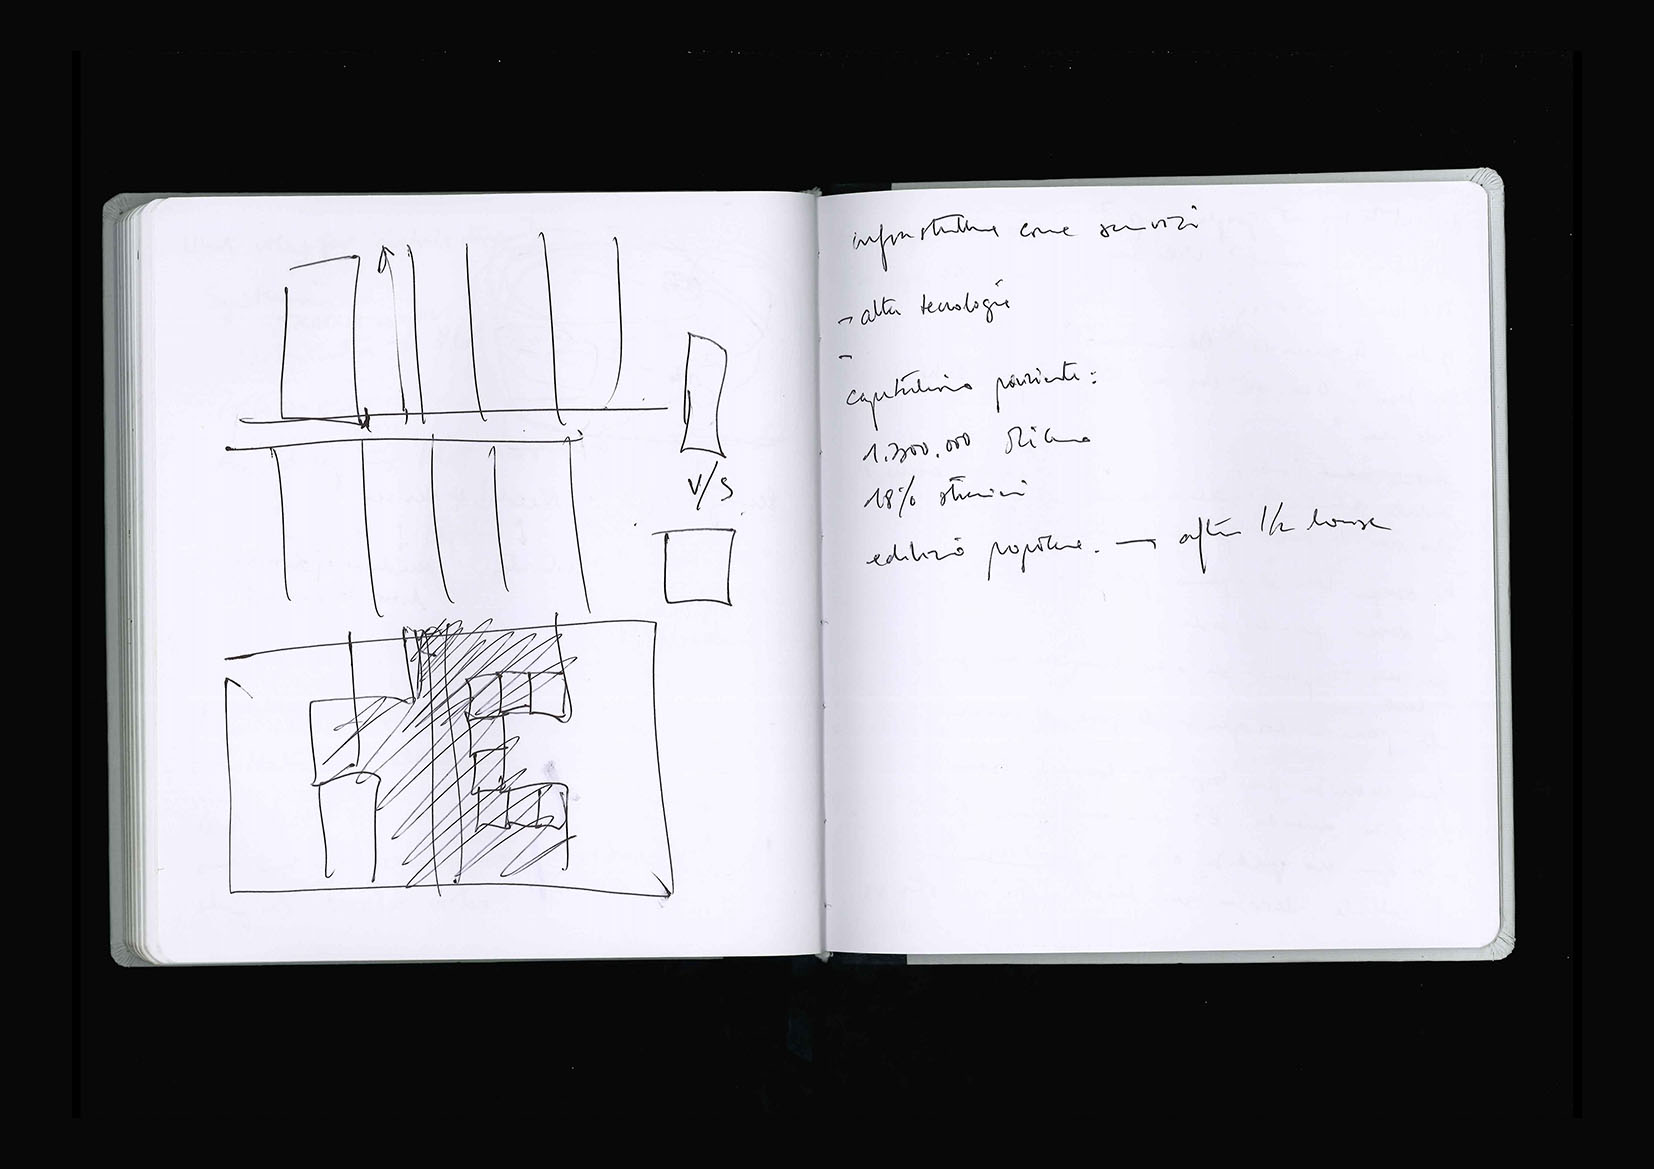 V/S
infrastrutture come servizi
- alta tecnologia
-
capitalismo paziente:
1.300.000
18% stranieri
edilizia popolare. → after 1/2 house